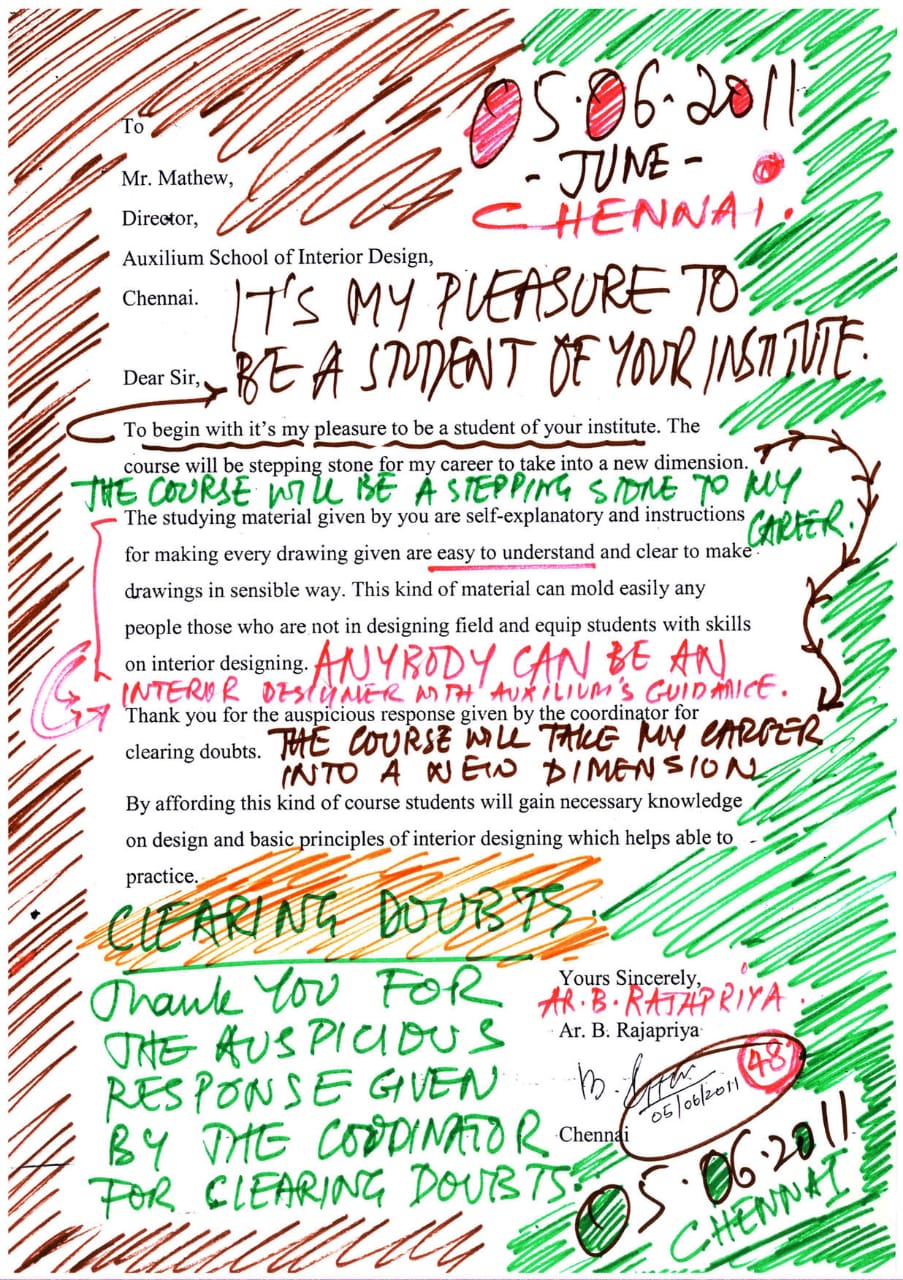 To
05.06.2011
- JUNE -
Mr. Mathew,
CHENNAI.
Director,
Auxilium School of Interior Design,
Chennai.
IT'S MY PLEASURE TO
BE A STUDENT OF YOUR INSTITUTE.
Dear Sir,
To begin with it's my pleasure to be a student of your institute. The
course will be stepping stone for my career to take into a new dimension.
THE COURSE WILL BE A STEPPING STONE TO MY
CAREER.
The studying material given by you are self-explanatory and instructions
for making every drawing given are easy to understand and clear to make
drawings in sensible way. This kind of material can mold easily any
people those who are not in designing field and equip students with skills
on interior designing. ANYBODY CAN BE AN
INTERIOR DESIGNER WITH AUXILIUM'S GUIDANCE.
Thank you for the auspicious response given by the coordinator for
clearing doubts. THE COURSE WILL TAKE MY CAREER
INTO A NEW DIMENSION
By affording this kind of course students will gain necessary knowledge
on design and basic principles of interior designing which helps able to
practice.
CLEARING DOUBTS.
Thank YOU FOR
THE AUSPICIOUS
RESPONSE GIVEN
BY THE COODINATOR
FOR CLEARING DOUBTS.
Yours Sincerely,
AR. B. RAJAPRIYA.
Ar. B. Rajapriya
48
05/06/2011
Chennai
05.06.2011
CHENNAI